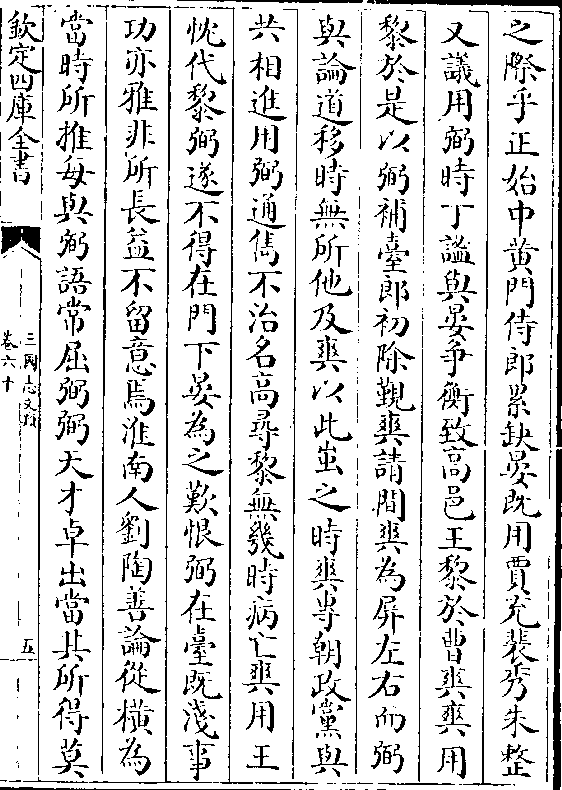 之際乎正始中黄門侍郎累缺晏既用賈充裴秀朱整
又議用弼時丁謐與晏爭衡致高邑王黎於曹爽爽用
黎於是以弼補臺郎初除覲爽請間爽為屏左右而弼
與論道移時無所他及爽以此蚩之時爽專朝政黨與
共相進用弼通儁不治名高尋黎無幾時病亡爽用王
忱代黎弼遂不得在門下晏為之歎恨弼在臺既淺事
功亦雅非所長益不留意焉淮南人劉陶善論從横為
當時所推每與弼語常屈弼弼天才卓出當其所得莫
欽定四庫全書
三國志文類
卷六十
五